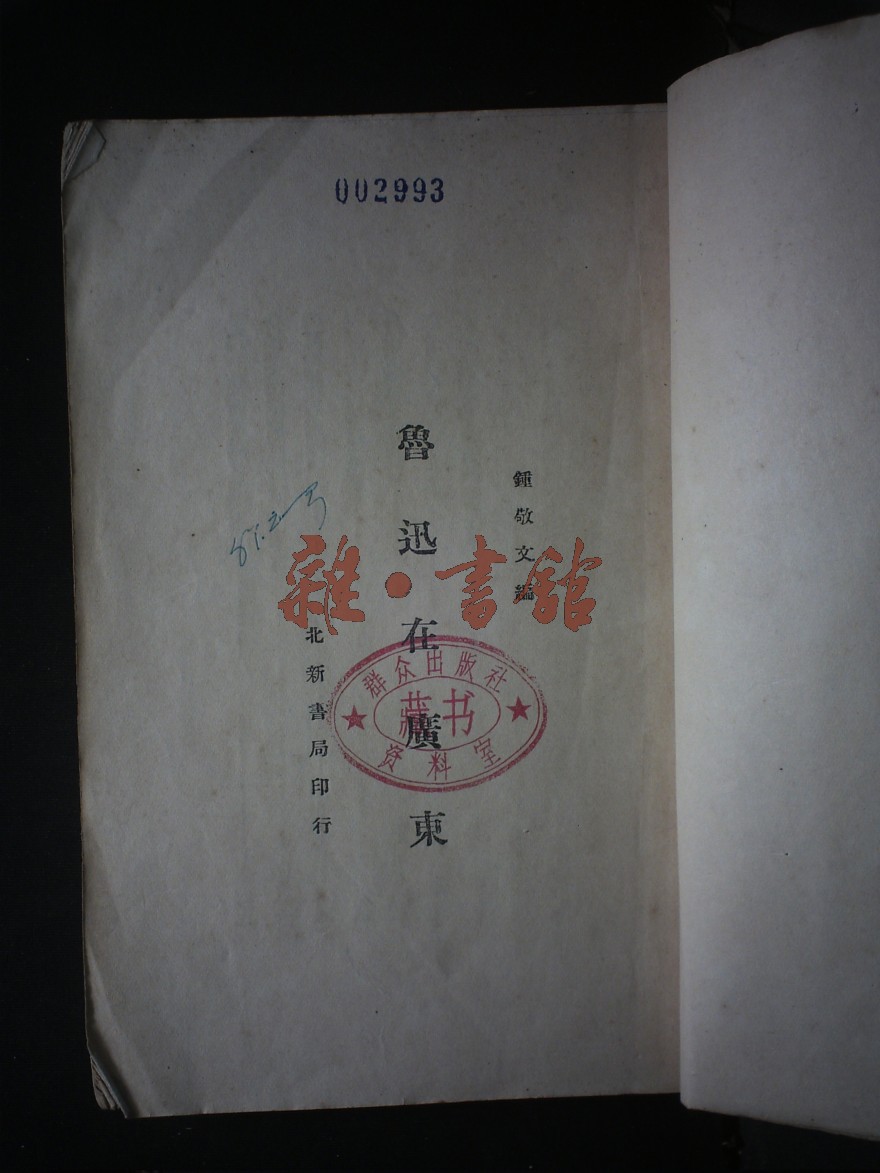 002993
鍾敬文編
魯迅在廣東
北新書局印行
雜·書館
群众出版社
藏书
资料室